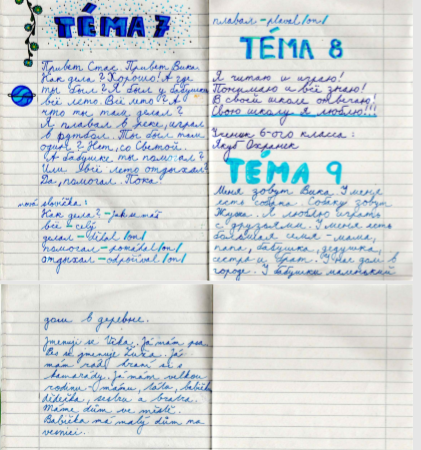 TÉMA 7
Привет Стас. Привет Вика.
Как дела? Хорошо! А где
ты был? Я был у бабушки
всё лето. Всё лето? А
что ты там делал?
Я плавал в реке, играл
в футбол. Ты был там
один? Нет, со Светой.
А бабушке ты помогал?
Или всё лето отдыхал?
Да, помогал. Пока.
moje slovíčka:
Как дела? - jak se máš
всё - celý
делал - dělal /on/
помогал - pomáhal /on/
отдыхал - odpočíval /on/
плавал - plaval /on/
TÉMA 8
Я читаю и играю!
Понимаю и всё знаю!
В своей школе отвечаю!
Свою школу я люблю!!!
Ученик 6-ого класса:
Якуб
TÉMA 9
Меня зовут Вика. У меня
есть собака. Собаку зовут
Жужа. Я люблю играть
с друзьями. У меня есть
большая семья - мама,
папа, бабушка, дедушка,
сестра и брат. У нас дом в
городе. У бабушки маленький
дом в деревне.
Jmenuji se Vika. Já mám psa
Pes se jmenuje Žuža. Já
mám rád hraní si s
kamarády. Já mám velkou
rodinu - mámu, tátu, babičku
dědečka, sestru a bratra.
Máme dům ve městě.
Babička má malý dům na
vesnici.